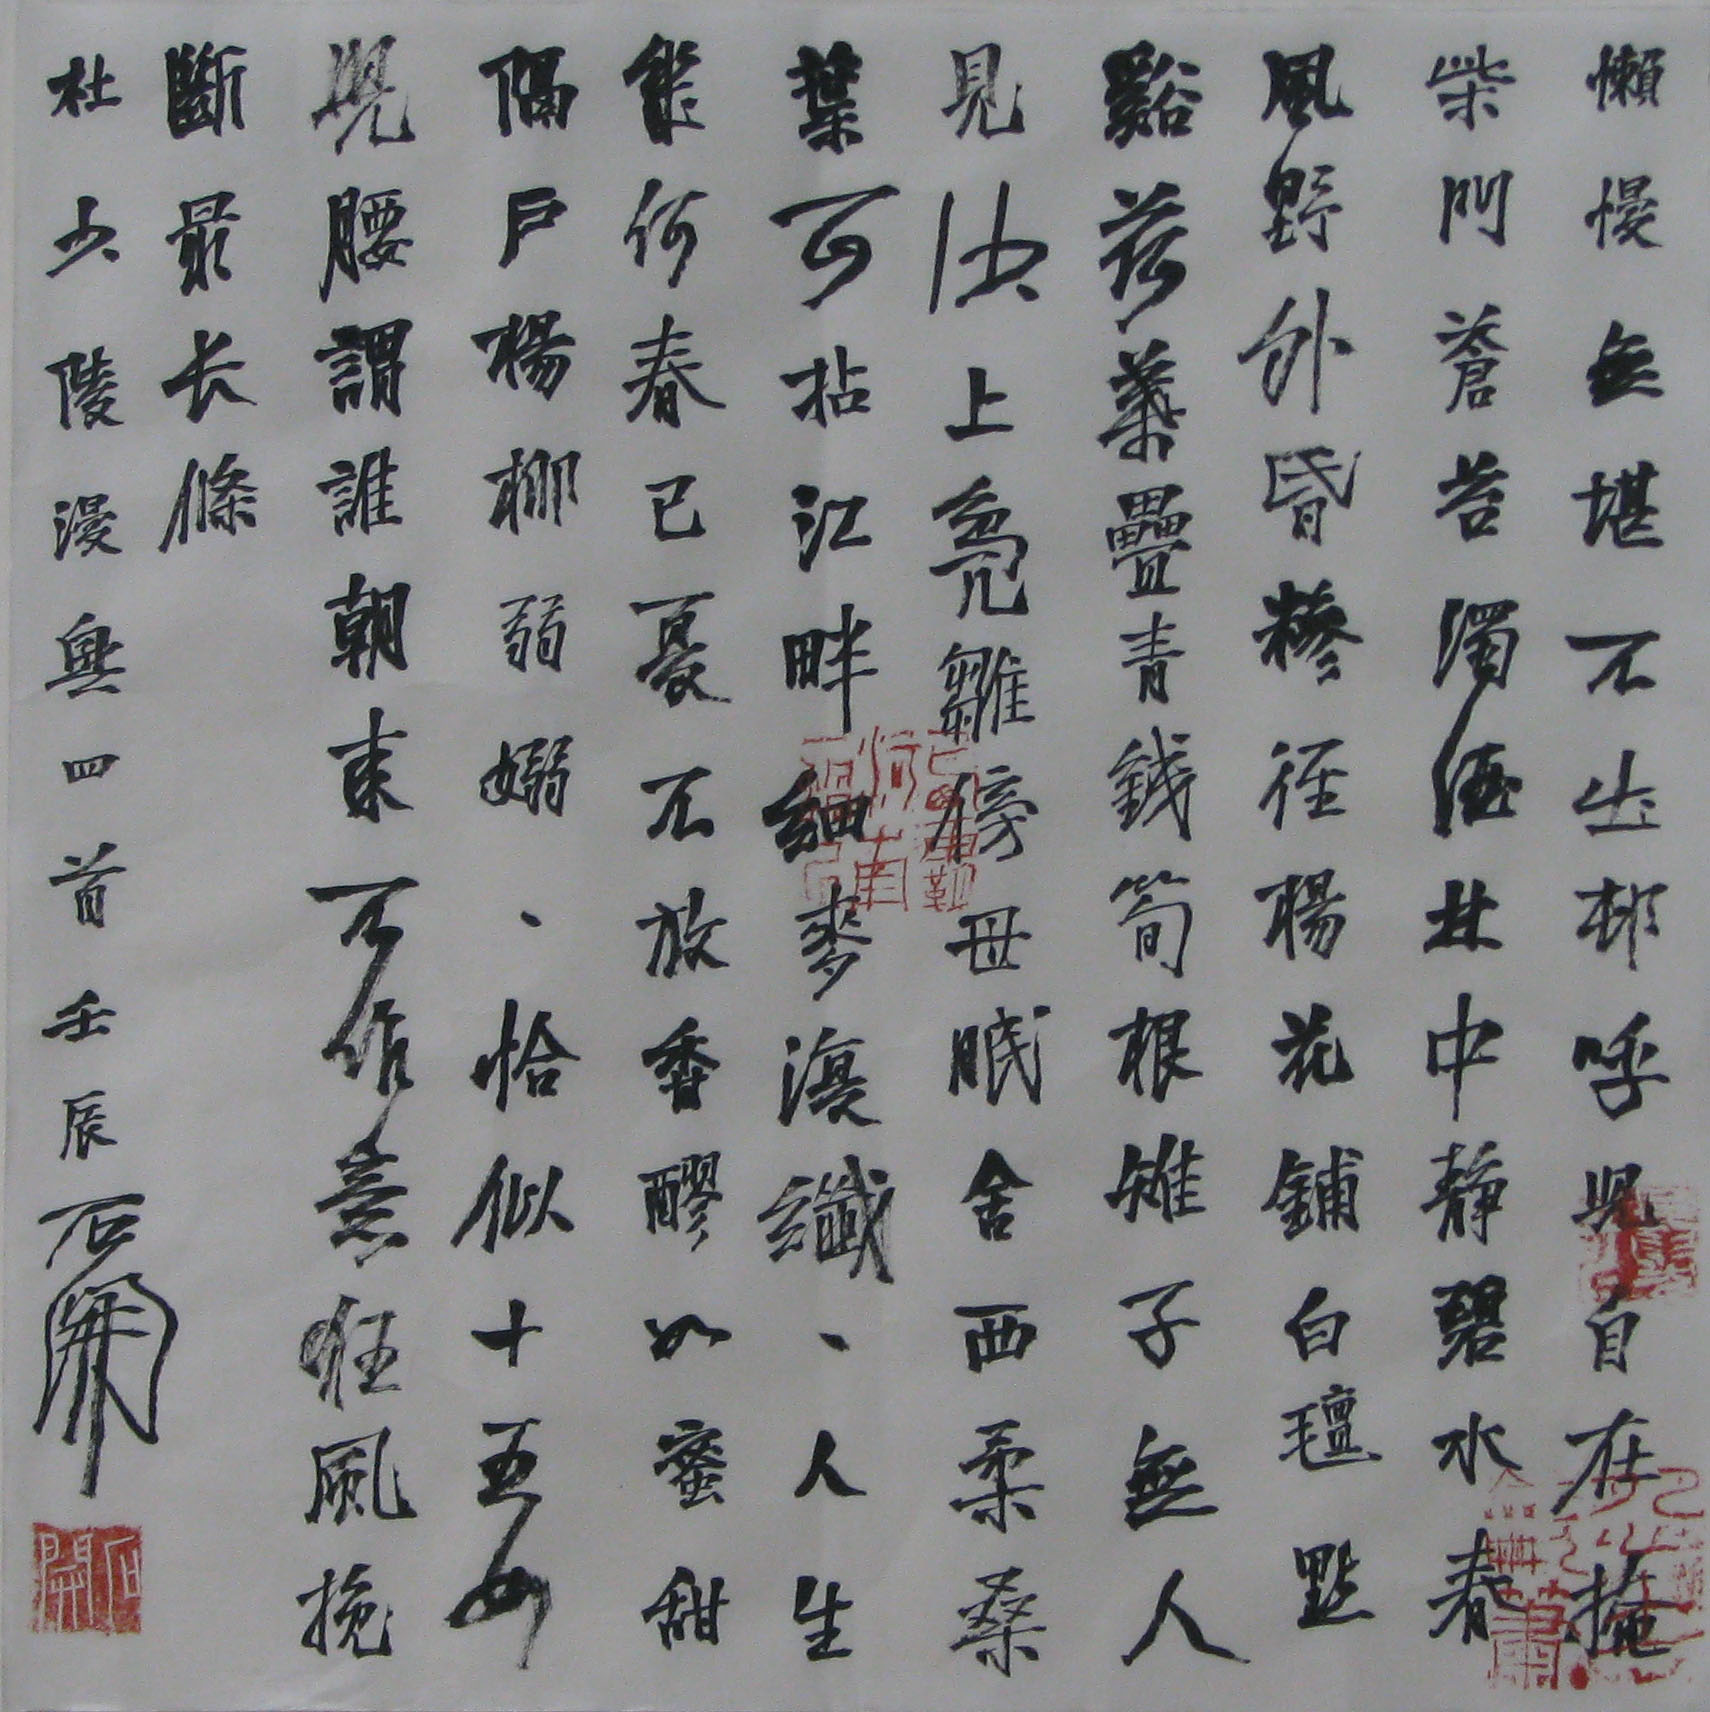 懶慢無堪不出邨呼児自在掩
柴門蒼苔濁酒林中静碧水春
風野外昏糝徑楊花鋪白氊點
谿荷葉疊青錢筍根雉子無人
見沙上鳧雛傍母眠舍西柔桑
葉可拈江畔細麥復纖、人生
幾何春已夏不放香醪如蜜甜
隔戶楊柳弱嫋、恰似十五女
児腰謂誰朝来不作意狂風挽
斷最长條
杜少陵漫興四首壬辰石開
石開